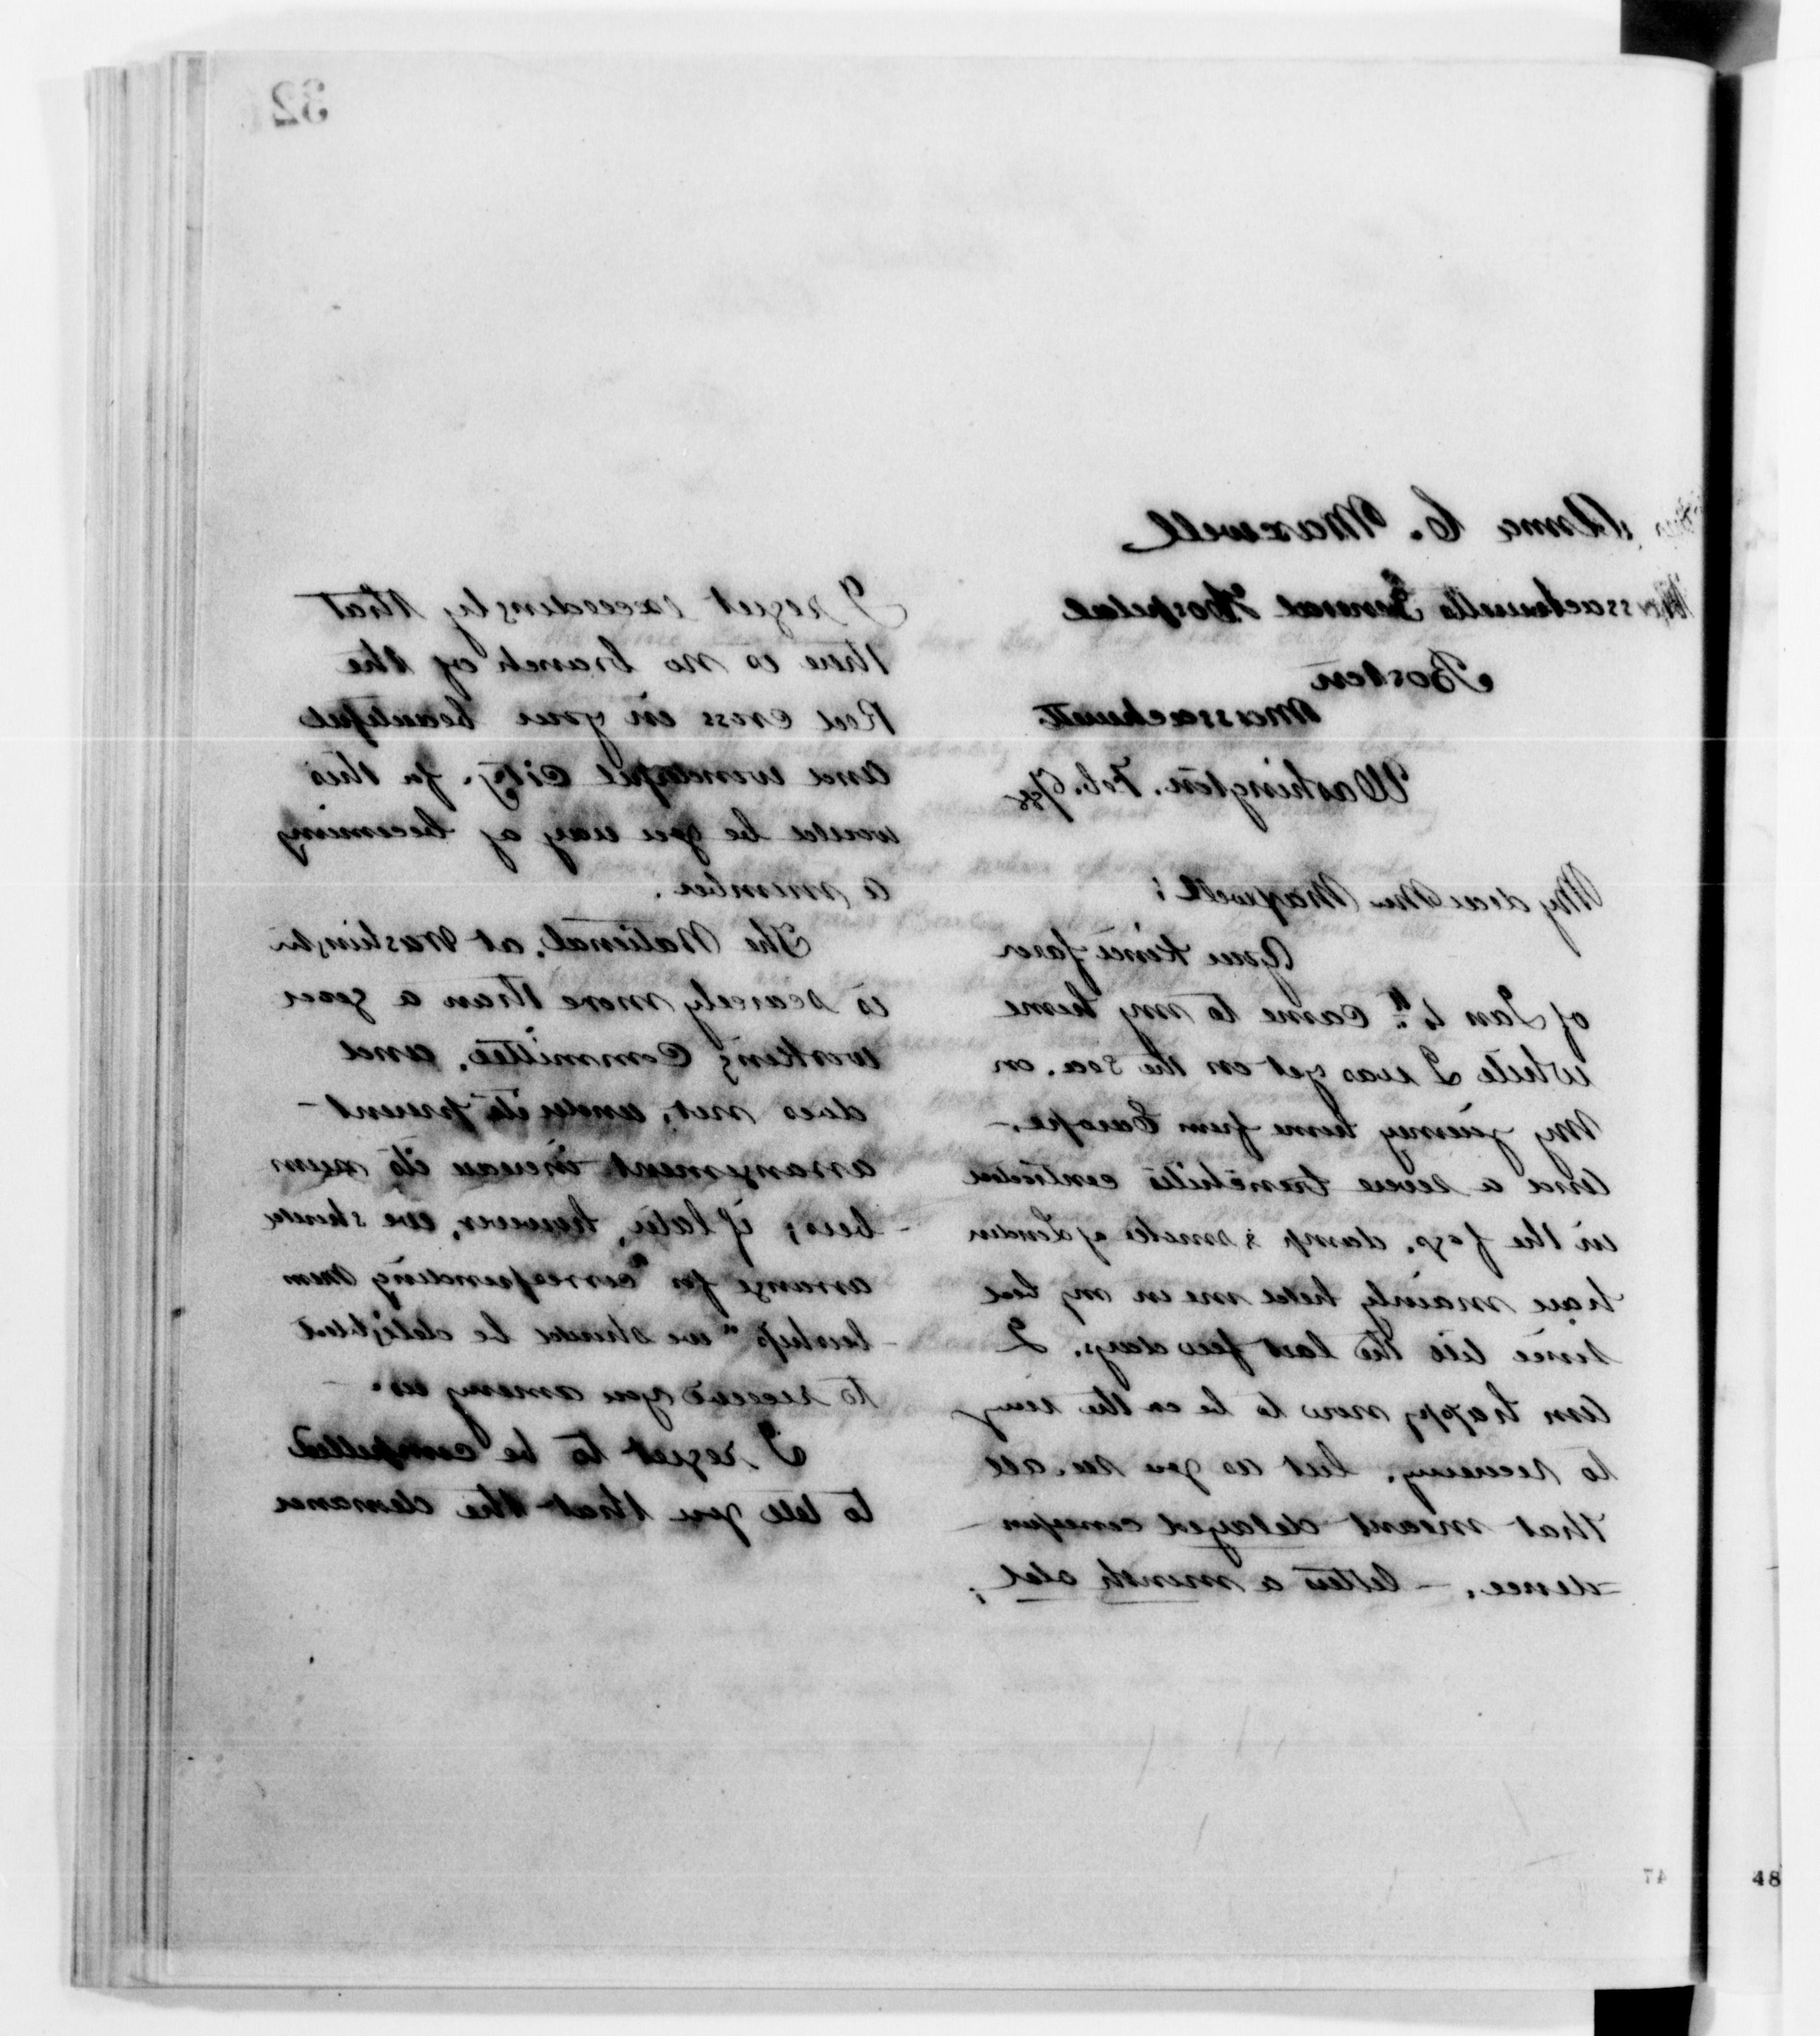 32
Anna C. Maxwell
Massachusetts General Hospital
Boston
Massachusetts
Washington. Feb. 6/88
My dear Miss Maxwell;
Your kind favor
of Jan 4th. came to my home
while I was yet on the sea. on
my journey home from Europe. -
and a severe bronchitis contracted
in the fogs, damp & smoke of London
have mainly held me in my bed
since till the last few days. I
am happy now to be on the way
to recovery. but as you see. all
that meant delayed correspon
=dence. - letters a month old;
I regret exceedingly that
there is no branch of the
Red Cross in your beautiful
and wonderful city. for this
would be your way of becoming
a member.
The National. at Washington
is scarcely more than a good
working Committee. and
does not, under its present -
arrangement increase its num
-bers; if later, however, we should
arrange for "corresponding mem
-bership" we should be delighted
to receive you among us. -
I regret to be compelled
to tell you that the demand
47
48